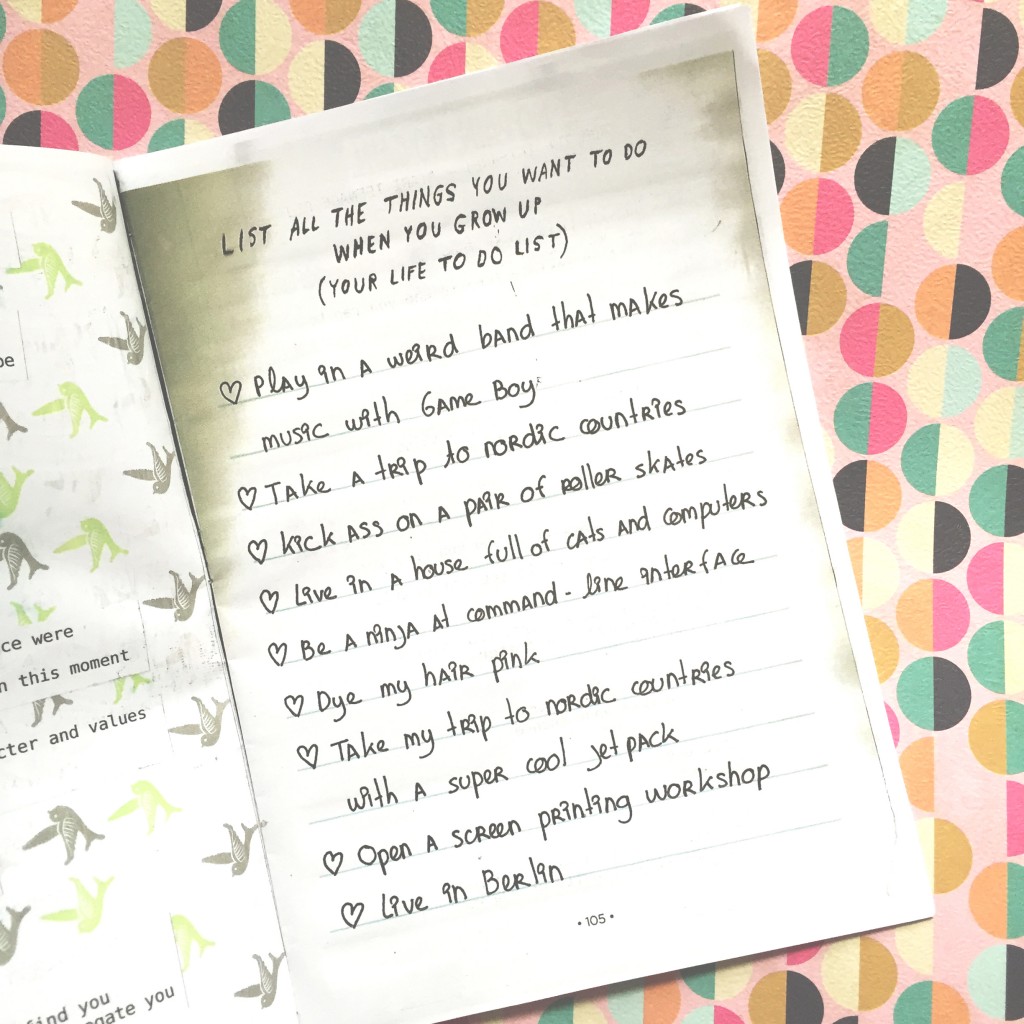 LIST ALL THE THINGS YOU WANT TO DO
WHEN YOU GROW UP
(YOUR LIFE TO DO LIST)
♡ Play in a weird band that makes
music with Game Boy
♡ Take a trip to nordic countries
♡ kick ass on a pair of roller skates
♡ Live in a house full of cats and computers
♡ Be a ninja at command-line interface
♡ Dye my hair pink
♡ Take my trip to nordic countries
with a super cool jet pack
♡ Open a screen printing workshop
♡ Live in Berlin
• 105 •
ce were
this moment
cter and values
find you
gate you